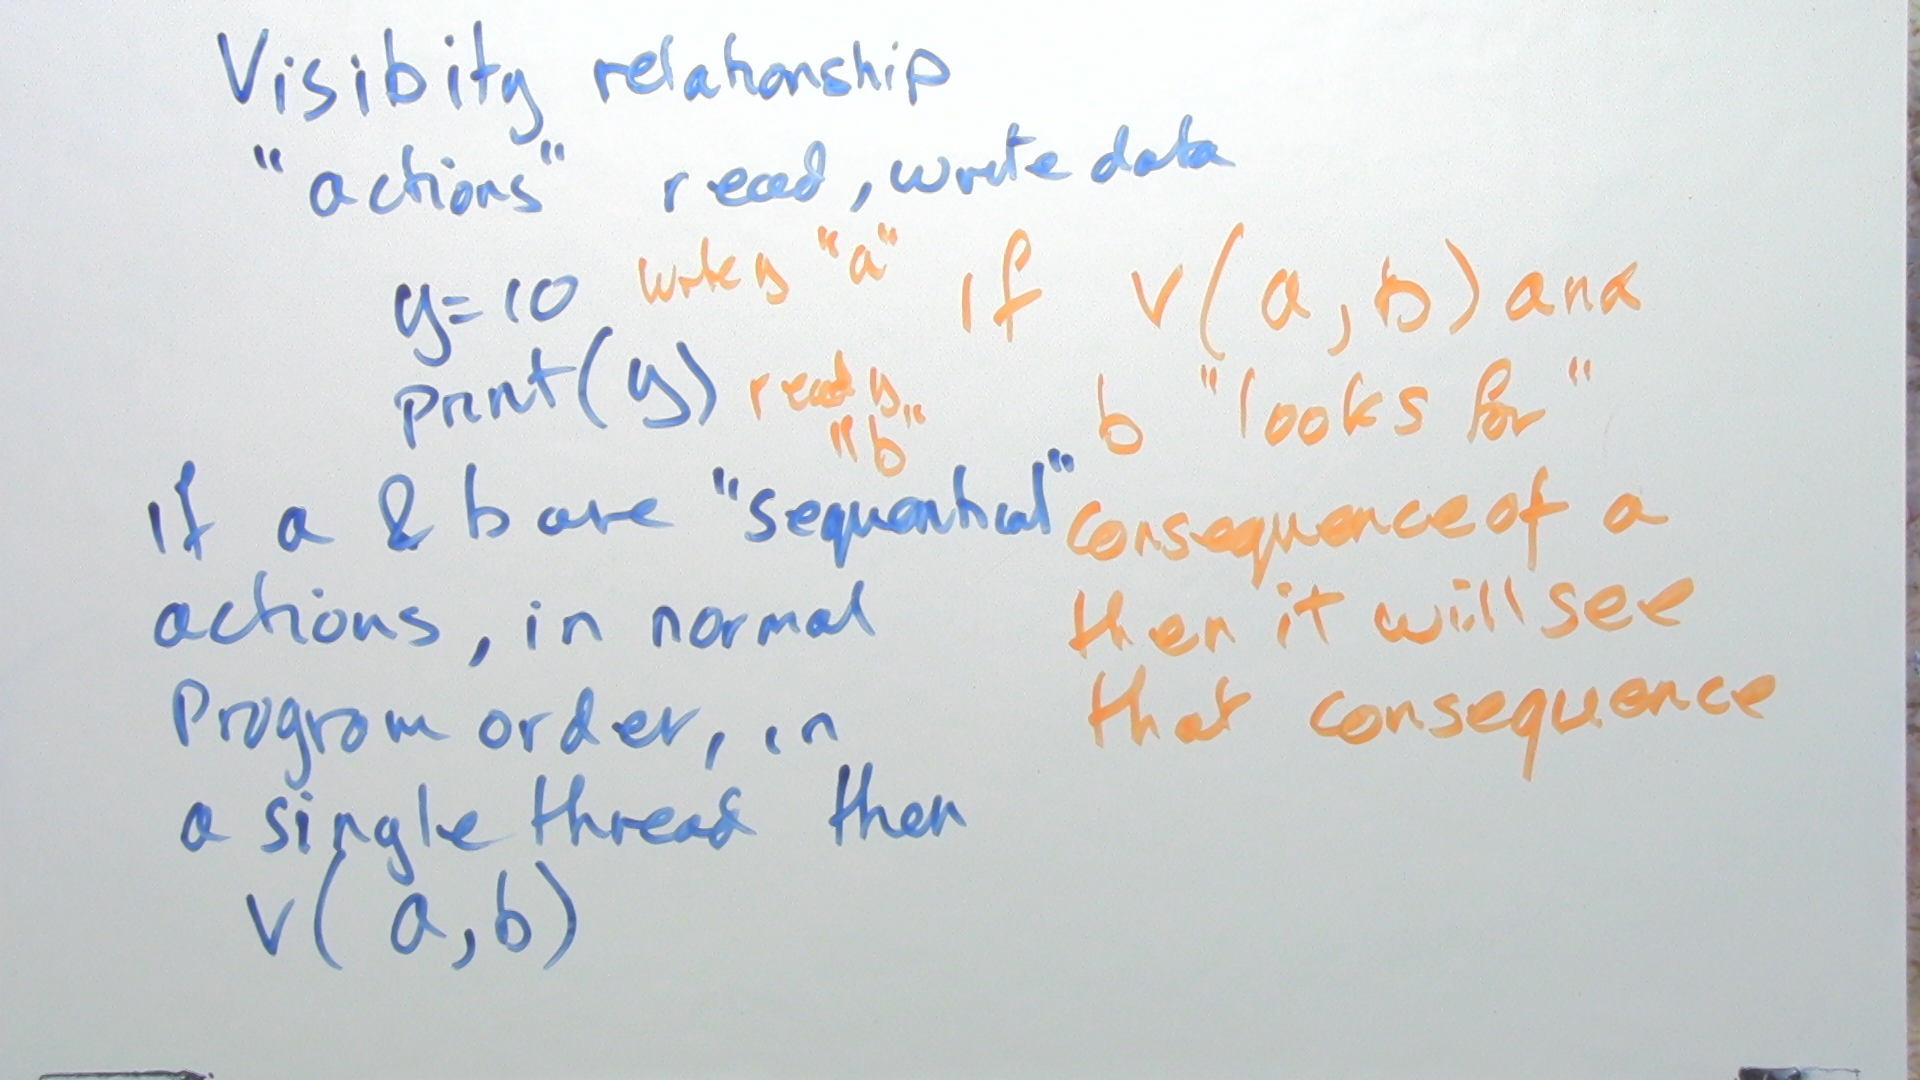 Visibity relationship
"actions" read, write data
y=10 write y "a"
print(y) read y
"b"
If a & b are "sequential"
actions, in normal
Program order, in
a single thread then
v(a,b)
if v(a,b) and
b "looks for"
consequence of a
then it will see
that consequence